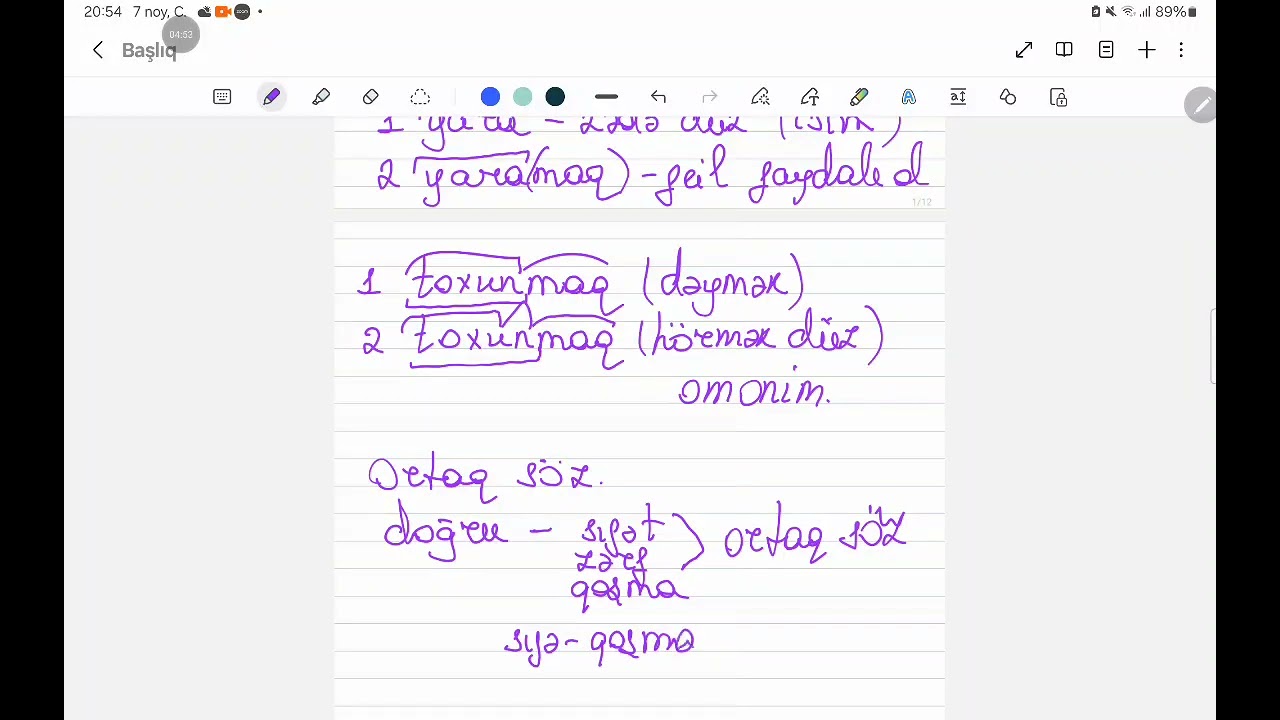 20:54 7 noy, C. zoom 89%
04:53
Başlıq
1 yara - düz (isim)
2 yara(maq) - feil faydalı d
1/12
1 toxunmaq (dəymək)
2 toxunmaq (hörmək düz)
omonim.
Ortaq söz.
doğru - sifət
zərf
ortaq söz
qoşma
sifə - qoşma